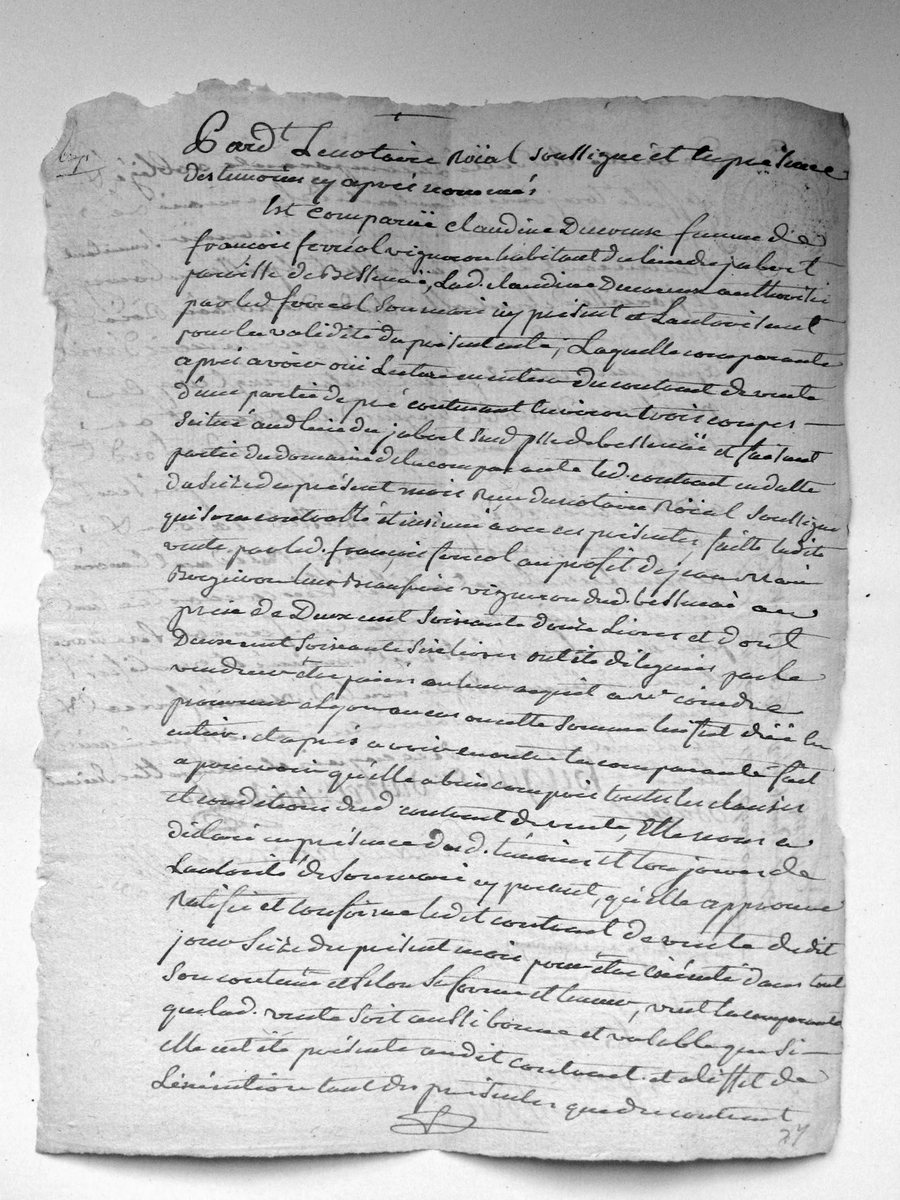 Pard.t Le notaire Roïal soussigné et en présence
des temoins cy après nommés
Est comparüe claudine Ducreux femme de
françois ferréal vigneron habitant du lieu du jabert
paroisse de Bessenaÿ, Lad. claudine Ducreux authorisée
par led. ferréal son mari icy présent et L'autorisant
pour la validité du présent acte, Laquelle comparante
après avoir oüi Lecture du contrat de vente
d'une partie de pré contenant Environ trois coupes
Scitué aud. lieu du jabert Susd. psse de bessenaÿ et faisant
partie du domaine de la comparante led. contrat en datte
du Seize du présent mois Reçu du notaire Roïal Soussigné
qui sera controllé et insinué avec ces présentes, faitte ladite
vente par led. françois ferréol au profit de jean
leur Beaufrère vigneron dud. bessenaÿ au
prix de Deux cent Soixante douze Livres et dont
Deux cent Soixante Six livres ont été déléguées par le
vendeur être paiées en leur acquit a Mr
procureur a Lyon au cas ou cette somme lui fut düe en
entier, et après avoir la comparante fait
apercevoir qu'elle a bien compris toutes les clauses
et conditions dud. contrat de vente, Elle nous a
déclaré en présence desd. témoins et toujours de
L'autorité de Son mari icy présent, qu'elle approuve
Ratifie et confirme ledit contrat de vente dudit
jour Seize du présent mois pour être éxécuté dans tout
Son contenu et Selon Sa forme et teneur, veut la comparante
que lad. vente soit aussi bonne et valable que si
elle eut été présente audit contrat. et a l'effet de
L'éxécution tant des présentes que du contrat
27